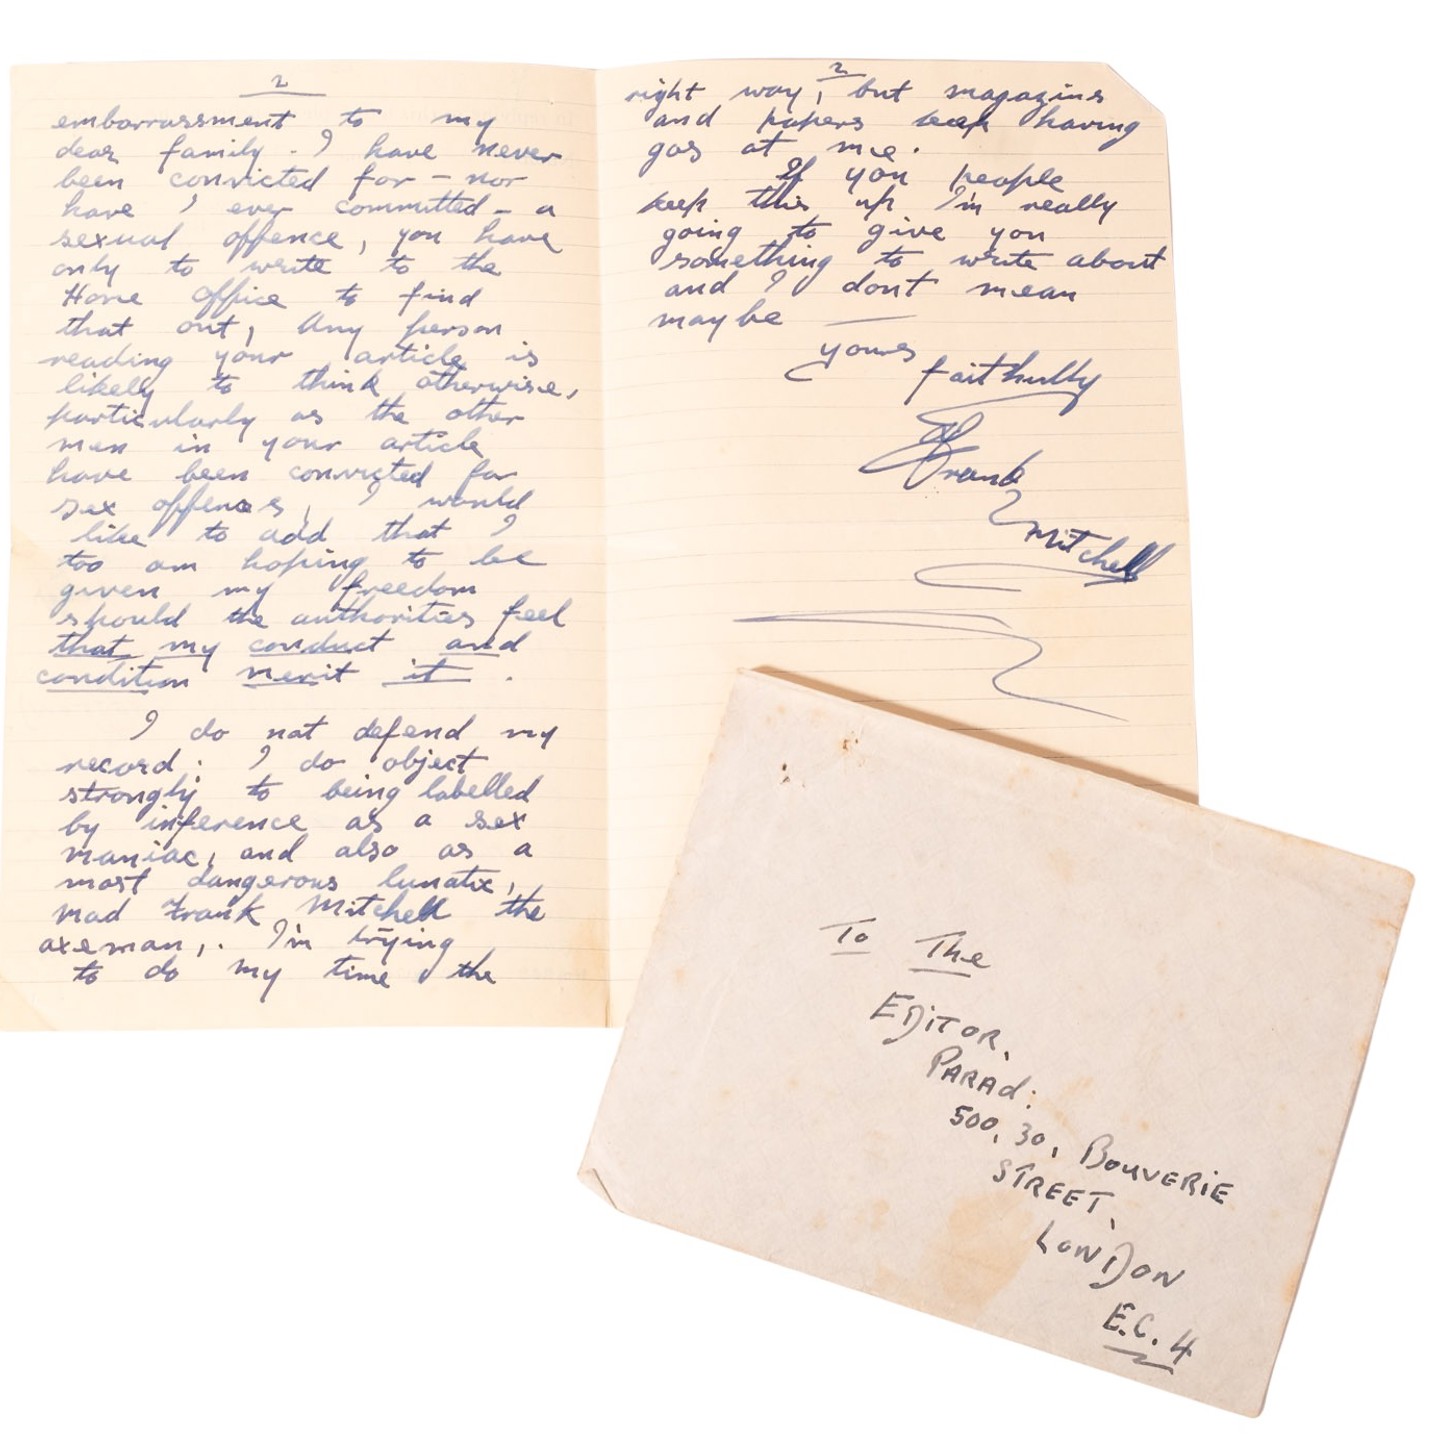 2
embarrassment to my
dear family. I have never
been convicted for - nor
have I ever committed - a
sexual offence, you have
only to write to the
Home Office to find
that out, Any person
reading your article is
likely to think otherwise,
particularly as the other
men in your article
have been convicted for
sex offences, I would
like to add that I
too am hoping to be
given my freedom
should the authorities feel
that my conduct and
condition merit it.
I do not defend my
record. I do object
strongly to being labelled
by inference as a sex
maniac, and also as a
most dangerous lunatic,
mad Frank Mitchell the
axeman,. I'm trying
to do my time the
2
right way, but magazins
and papers keep having
gos at me.
If you people
keep this up I'm really
going to give you
something to write about
and I dont mean
maybe —
yours faithfully
Frank
Mitchell
To The
EDiTOR,
PARAd:
500, 30, BOUVERiE
STREET,
LONDON
E.C. 4